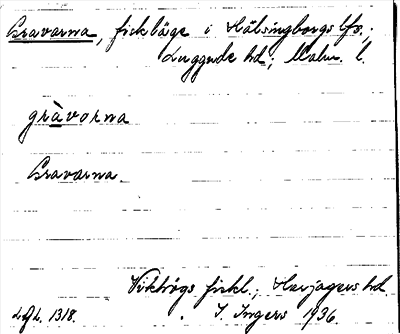 Gravarna, fiskläge i Hälsingborgs lfs.;
Luggude hd; Malm. l.
gràvorna
Gravarna.
Vikhögs fiskl.; Harjagers hd.
LAL. 1318. I. Ingers 1936.